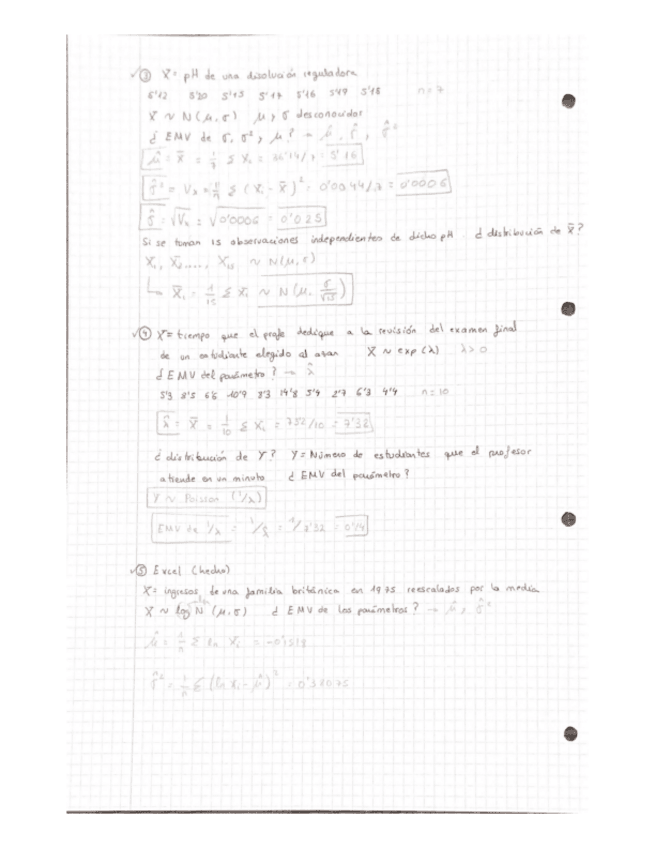 ③ X = pH de una disolución reguladora
5'12 5'20 5'15 5'17 5'16 5'19 5'15 n = 7
X ~ N(μ, σ) μ, σ desconocidos
¿ EMV de σ, σ², μ? → μ̂, σ̂, σ̂²
μ̂ = X̄ = 1/7 Σ Xi = 36'14/7 = 5'16
σ̂² = Vx = 1/n Σ (Xi - X̄)² = 0'0044/7 = 0'0006
σ̂ = √Vx = √0'0006 = 0'025
Si se toman 15 observaciones independientes de dicho pH ¿ distribución de X̄?
X₁, X₂, ...., X₁₅ ~ N(μ, σ)
X̄i = 1/15 Σ Xi ~ N(μ, σ/√15)
④ X = tiempo que el profe dedique a la revisión del examen final
de un estudiante elegido al azar X ~ exp(λ) λ > 0
¿ EMV del parámetro? → λ̂
5'3 8'5 6'6 10'9 8'3 14'8 5'4 2'7 6'3 4'4 n = 10
λ̂ = X̄ = 1/10 Σ Xi = 732/10 = 7'32
¿ distribución de Y? Y = Número de estudiantes que el profesor
atiende en un minuto ¿ EMV del parámetro?
Y ~ Poisson (1/λ)
EMV de 1/λ = 1/λ̂ = 1/7'32 = 0'14
⑤ Excel (hecho)
X = ingresos de una familia británica en 1975 reescalados por la media
X ~ log N (μ, σ) ¿ EMV de los parámetros? → μ̂, σ̂²
μ̂ = 1/n Σ ln Xi
σ̂² = 1/n Σ (ln Xi - μ̂)²